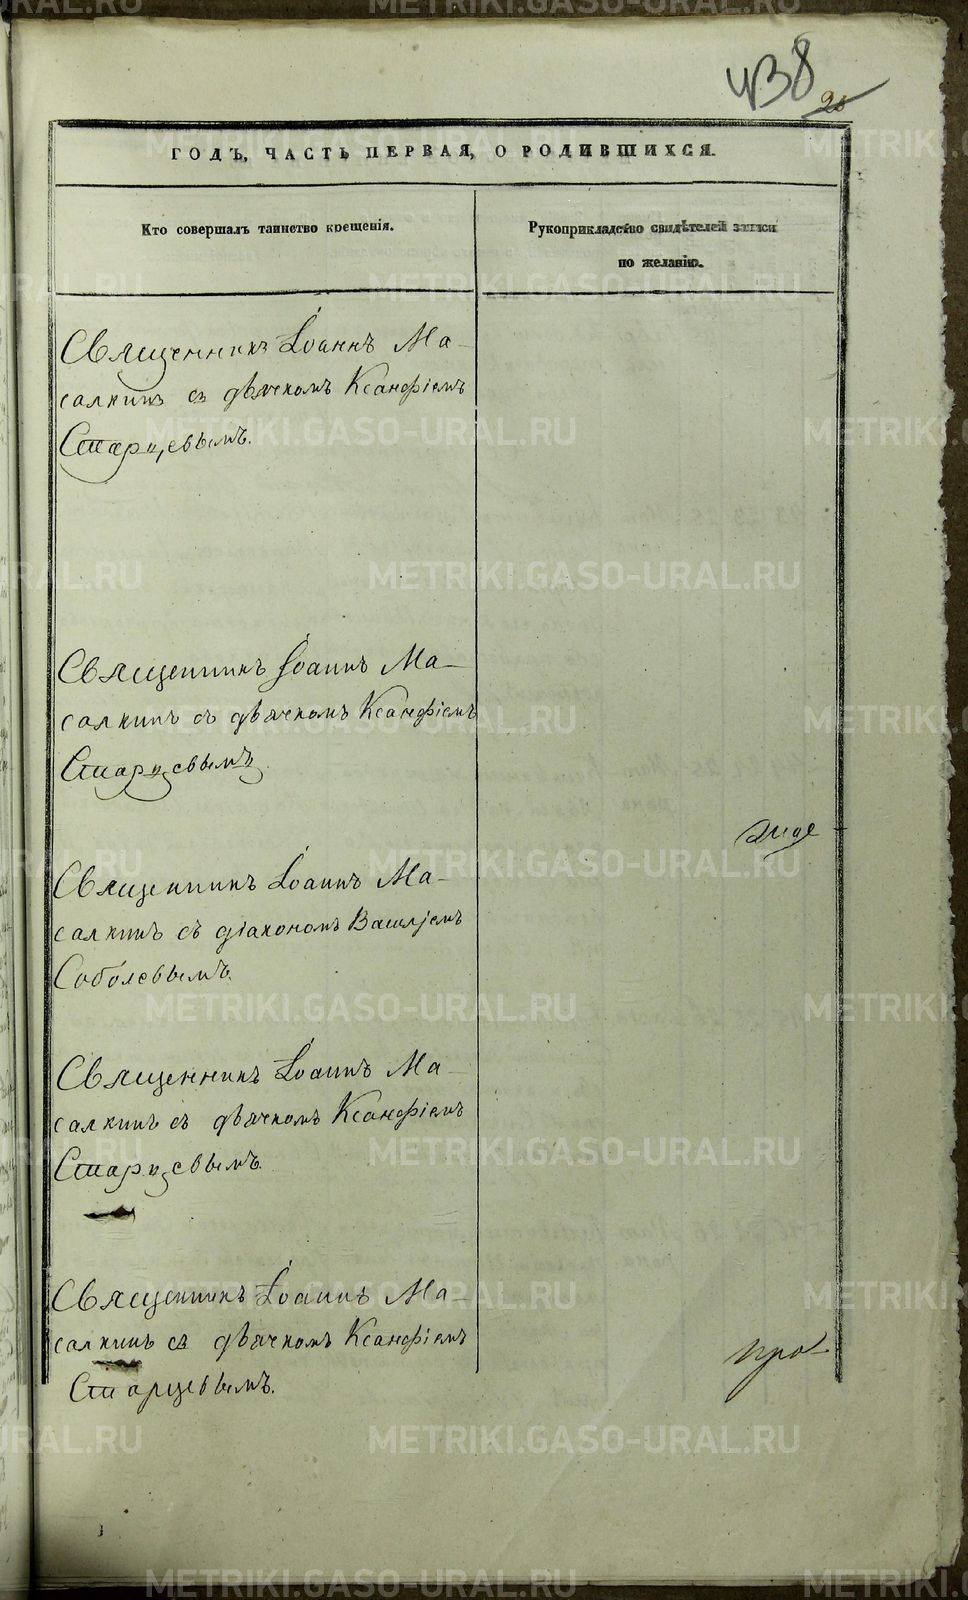 438
ГОДЪ, ЧАСТЬ ПЕРВАЯ, О РОДИВШИХСЯ.
Кто совершалъ таинство крещенія.
Рукоприкладство свидѣтелей записи
по желанію.
Священникъ Іоаннъ Ма-
салкинъ съ дьячкомъ Ксанфіемъ
Старцевымъ.
Священникъ Іоаннъ Ма-
салкинъ съ дьячкомъ Ксанфіемъ
Старцевымъ.
Священникъ Іоаннъ Ма-
салкинъ съ діакономъ Василіемъ
Соболевымъ.
Священникъ Іоаннъ Ма-
салкинъ съ дьячкомъ Ксанфіемъ
Старцевымъ.
Священникъ Іоаннъ Ма-
салкинъ съ дьячкомъ Ксанфіемъ
Старцевымъ.
METRIKI.GASO-URAL.RU